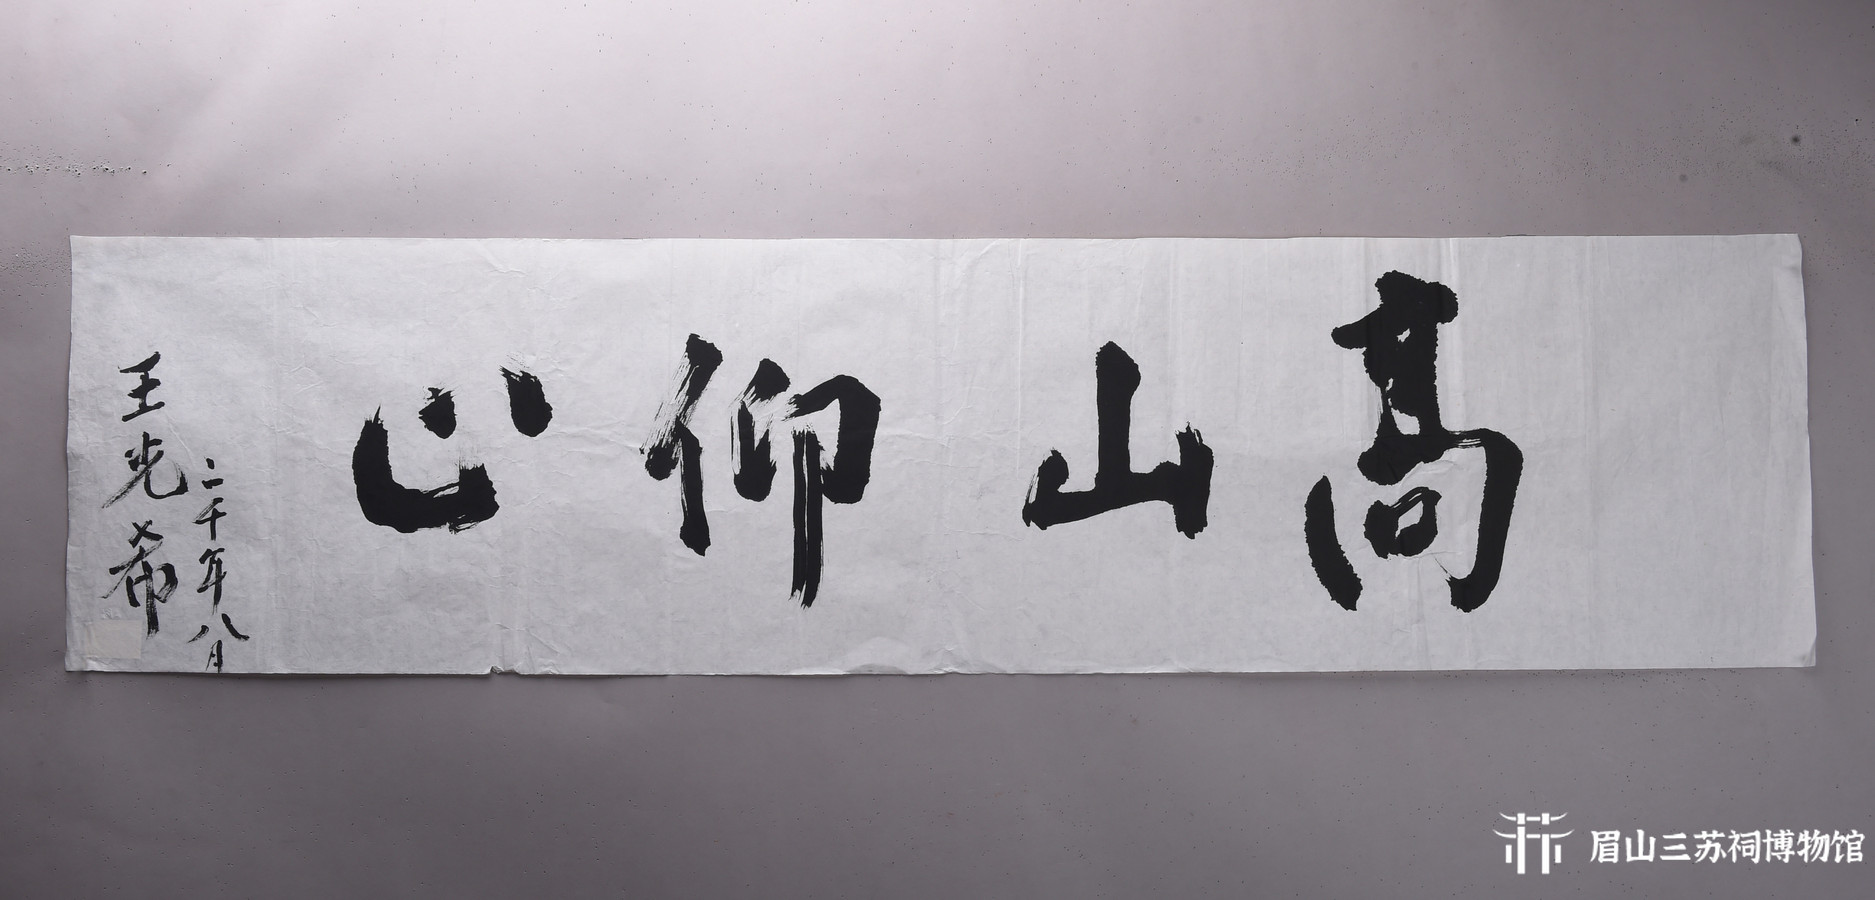 高山仰止
二千年八月
王光希
眉山三苏祠博物馆